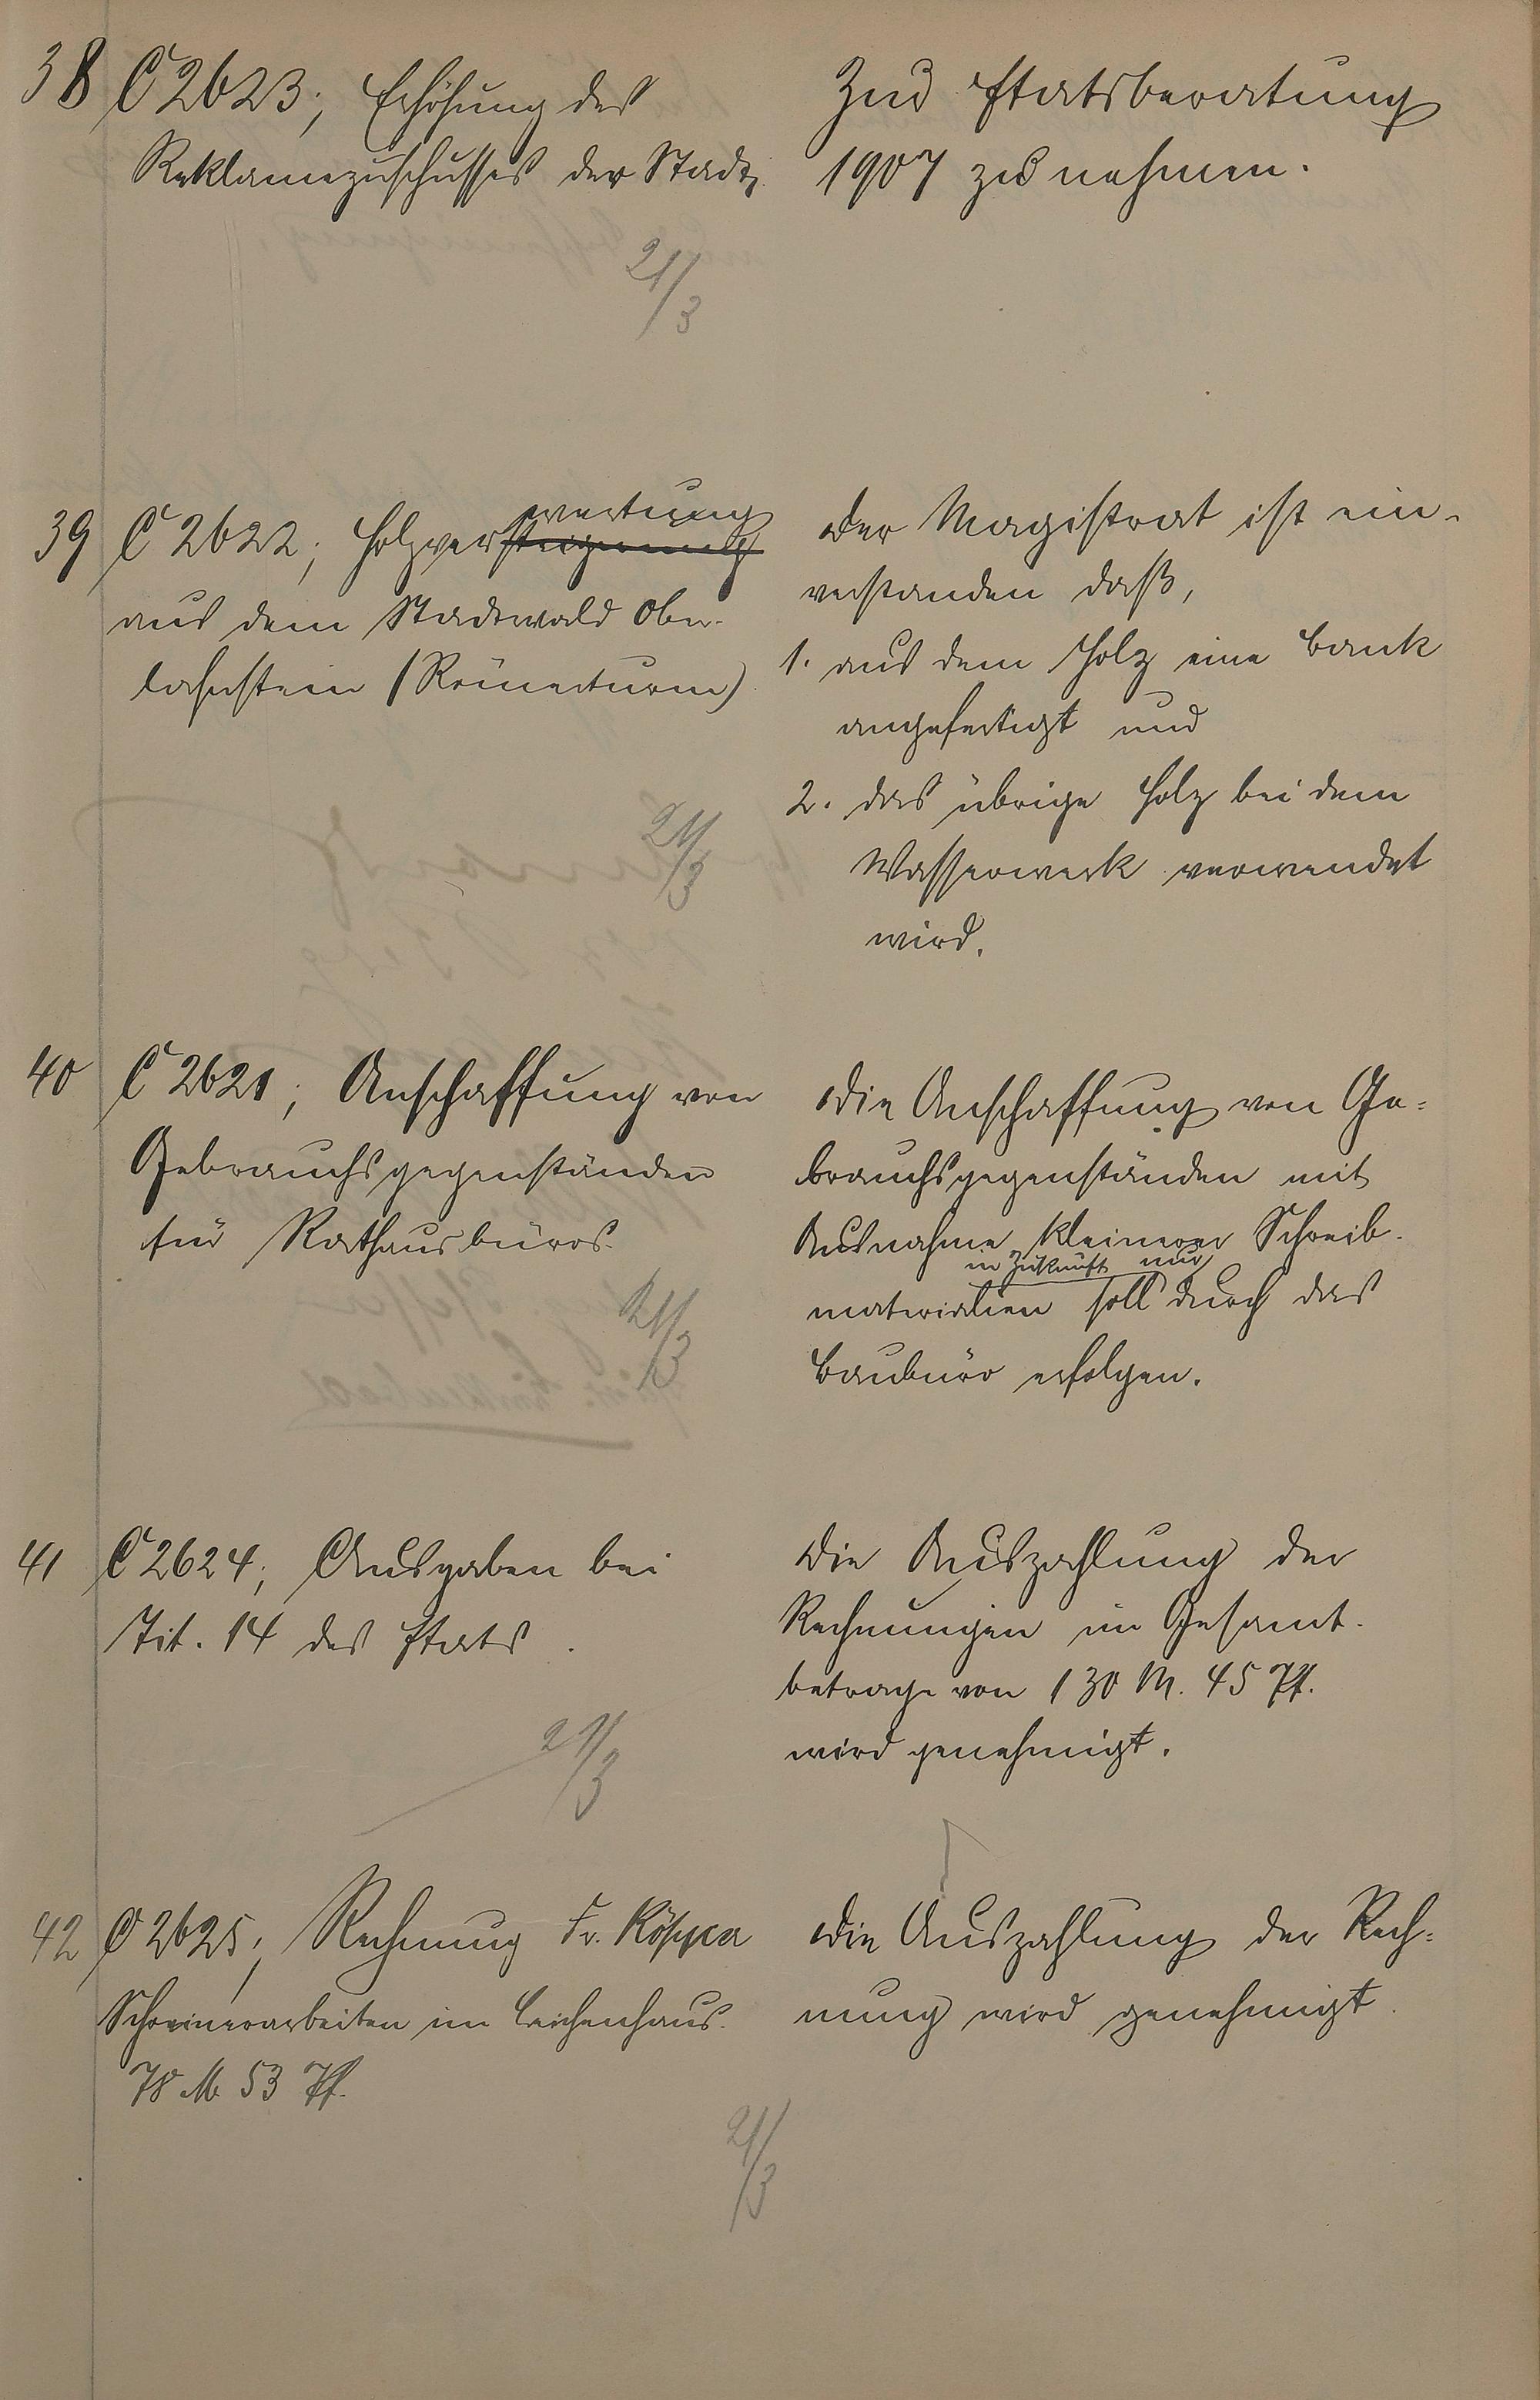 38 C 2623; Erhöhung des
Reklamezuschusses der Stadt.
21/3
Zur Etatsberatung
1907 zu nehmen.
39 C 2622; Holzversteigerung
wertung
aus dem Stadtwald Ober-
lahnstein (Römerturm)
21/3
Der Magistrat ist ein-
verstanden daß,
1. aus dem Holz eine Bank
angefertigt und
2. das übrige Holz bei dem
Wasserwerk verwendet
wird.
40 C 2621; Anschaffung von
Gebrauchsgegenständen
für Rathausbüros.
21/3
Die Anschaffung von Ge=
brauchsgegenständen mit
Ausnahme kleinerer Schreib-
in Zukunft nur
materialien soll durch das
Baubüro erfolgen.
41 C 2624; Ausgaben bei
Tit. 14 des Etats.
21/3
Die Auszahlung der
Rechnungen im Gesamt-
betrage von 130 M. 45 Pf.
wird genehmigt.
42 C 2625; Rechnung Fr. Köppca
Schreinerarbeiten im Leichenhaus.
78 M 53 Pf.
21/3
Die Auszahlung der Rech=
nung wird genehmigt.